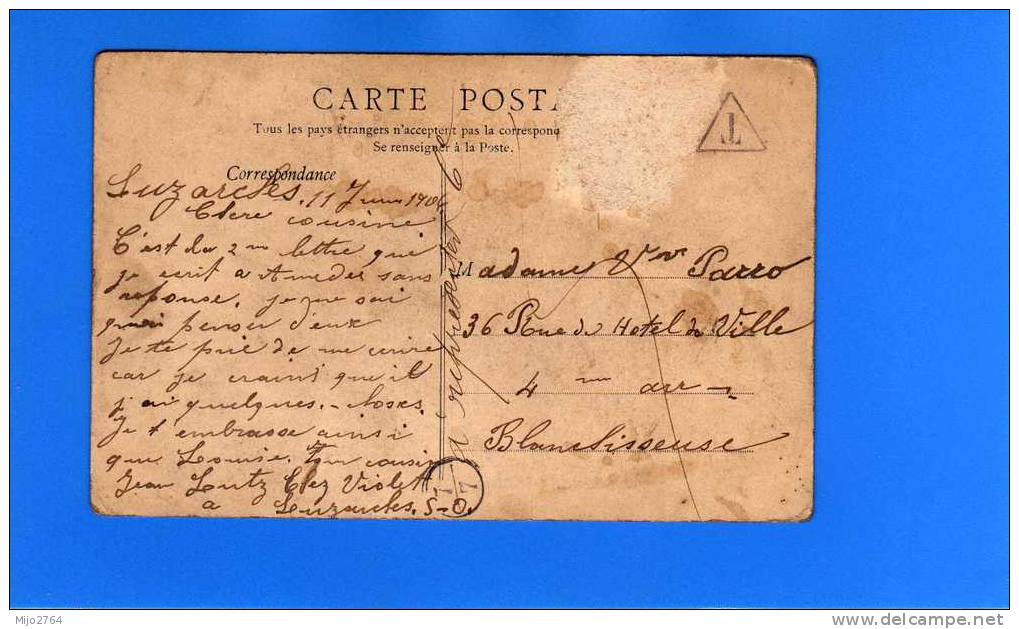 CARTE POSTA
Tous les pays étrangers n'acceptent pas la correspond
Se renseigner à la Poste.
Correspondance
T
Luzarches, 11 Juin 190
Chere cousine
C'est la 2me lettre que
je ecrit a Amedee sans
reponse. je ne sai
quoi penser d'eux
Je te prie de me ecrire
car je craint qu'il
j ai quelques-choses.
Je t embrasse ainsi
que Louise. Ton cousin
Jean Lutz Chez Violet
a Luzarches. S-O.
a représenter
Madame Vve Parro
36 Rue de Hotel de Ville
4 me arr
Blanchisseuse
7
Mijo2764
www.delcampe.net